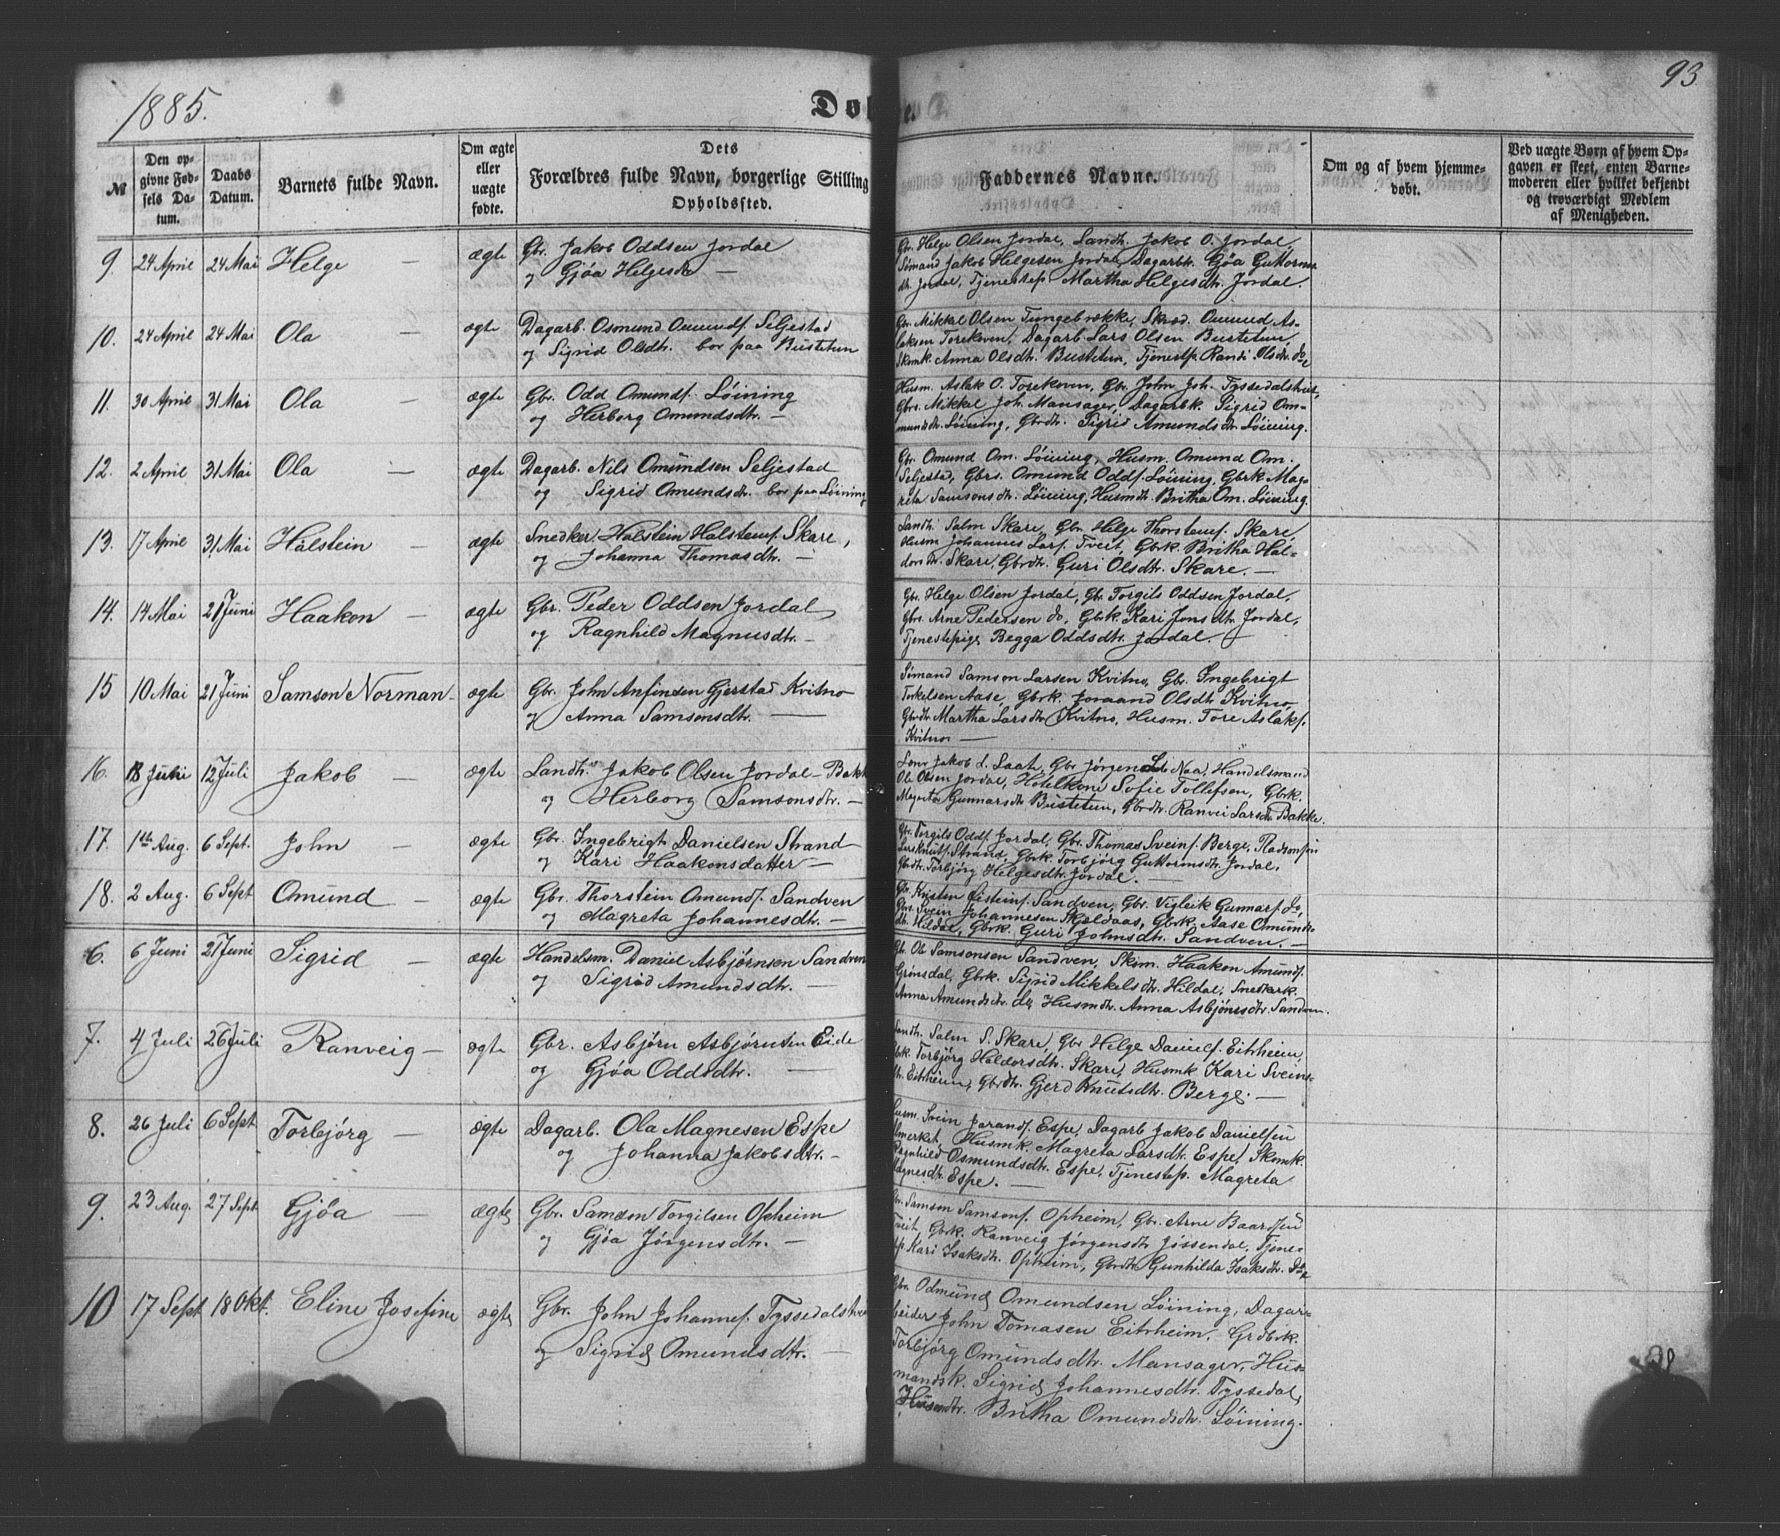 1885.
Døb
e.
93
№
Den opgivne Fødsels Datum.
Daabs Datum.
Barnets fulde Navn.
Om ægte eller uægte fødte.
Dets Forældres fulde Navn, borgerlige Stilling Opholdssted.
Faddernes Navne.
Om og af hvem hjemmedøbt.
Ved uægte Børn af hvem Opgaven er skeet, enten Barnemoderen eller hvilket bekjendt og troværdigt Medlem af Menigheden.
9. 24 April 24 Mai Helge — ægte Gbr. Jakob Oddsen Jordal
og Gjøa Helgesdtr —
Gbr. Helge Olsen Jordal, Landh. Jakob O. Jordal,
Sömand Jakob Helgesen Jordal, Dagarbk. Gjøa Guttorms
dtr. Jordal, Tjenestep. Martha Helgesdtr. Jordal.
10. 24 April 24 Mai Ola — ægte Dagarb. Osmund Omundsf. Seljestad
og Sigrid Olsdtr. bor paa Bustetun
Gbr. Mikkel Olsen Tungebrække, Skræd. Omund As-
laksen Torekoven, Dagarb Lars Olsen Bustetun
Skmk Anna Olsdtr. Bustetun, Tjenestp. Randi Olsdtr. do
11. 30 April 31 Mai Ola — ægte Gbr. Odd Omundsf. Löining
og Herborg Omundsdtr. —
Husm. Aslak O. Torekoven, Gbr. John Joh. Tyssedalstveit,
Gbrs. Mikkel Joh. Mansager, Dagarbk. Sigrid Om-
mundsdtr. Löining, Gbrdtr. Sigrid Amundsdtr Löining.
12. 2 April 31 Mai Ola — ægte Dagarb. Nils Omundsen Seljestad
og Sigrid Omundsdtr. bor paa Löining
Gbr. Omund Om. Löining, Husm. Omund Om.
Seljestad, Gbrs. Omund Oddsf. Löining, Gbrk Mag-
reta Samsonsdtr. Löining, Husmdtr. Britha Om. Löining
13. 17 April 31 Mai Halstein — ægte Snedker Halstein Halsteinsf. Skare,
og Johanna Thomasdtr. —
Landh. Salm Skare, Gbr. Helge Thorsteinsf. Skare,
Husm Johannes Larsf. Tveit, Gbrk. Britha Hal-
dorsdtr. Skare, Gbrdtr. Guri Olsdtr. Skare. —
14. 14 Mai 21 Juni Haakon — ægte Gbr. Peder Oddsen Jordal,
og Ragnhild Magnusdtr. —
Gbr. Helge Olsen Jordal, Gbr. Torgils Oddsen Jordal,
Gbrs. Arne Pedersen do, Gbrk. Kari Jonsdtr. Jordal,
Tjenestepige Begga Oddsdtr. Jordal. —
15 10 Mai 21 Juni Samson Norman — ægte Gbr. John Anfinsen Gjerstad Kvitno
og Anna Samsonsdtr. —
Sömand Samson Larsen Kvitno, Gbr. Ingebrigt
Torkelsen Aase, Gbrk. Joraand Olsdtr. Kvitno,
Gbrdtr. Martha Larsdtr. Kvitno, Husm. Tore Aslaksf.
Kvitno —
16. 18 Juni 12 Juli Jakob — ægte Landh. Jakob Olsen Jordal-Bakke
og Herborg Samsonsdtr. —
Jakob L. Laate, Gbr Jørgen Naa, Handelsmand
Ole Olsen Jordal, Hotelkone Sofie Tollefsen, Gbrk.
Magreta Gunnarsdtr Bustetun, Gbrdtr. Ranvei Larsdtr. Bakke.
17. 1ste Aug. 6 Sept. John — ægte Gbr. Ingebrigt Danielsen Strand
og Kari Haakonsdatter —
Gbr. Torgils Oddsf. Jordal, Gbr. Thomas Sveinsf. Berge, Pladsmsön
Lars Knutsf. Strand, Gbrk. Torbjørg Guttormsdtr. Jordal,
Gbrdtr. Torbjørg Helgesdtr. Jordal. —
18. 2 Aug. 6 Sept Omund — ægte Gbr. Thorstein Omundsf. Sandven
og Magreta Johannesdtr. —
Gbr. Kristen Eisteinsf. Sandven, Gbr. Vigleik Gunnarsf. do,
Gbrs. Svein Johannesen Skjeldaas, Gbrk. Aase Omunds-
dtr. Hildal, Gbrk. Guri Johnsdtr. Sandven. —
6. 6 Juni 21 Juni Sigrid — ægte Handelsm. Daniel Asbjørnsen Sandven
og Sigrid Amundsdtr. —
Gbr. Ole Samsonsen Sandven, Skim. Haakon Amundsf.
Grönsdal, Gbrk. Sigrid Mikkelsdtr. Hildal, Snedkerk.
Anna Amundsdtr. do, Husmdtr. Anna Asbjönsdtr. Sandven.
7. 4 Juli 26 Juli Ranveig — ægte Gbr. Asbjørn Asbjørnsen Eide
og Gjøa Oddsdtr. —
Landh. Salm S. Skare, Gbr Helge Danielsf. Eitrheim,
Gbrk. Torbjörg Haldorsdtr. Skare, Husmk Kari Sveins-
dtr. Eitrheim, Gbrdtr. Gjerd Knutsdtr. Berge. —
8. 26 Juli 6 Sept Torbjørg — ægte Dagarb. Ola Magnesen Espe
og Johanna Jakobsdtr. —
Husm. Svein Jarandsf. Espe, Dagarb Jakob Danielsen
Almerket, Husmk. Magreta Larsdtr. Espe, Skomk.
Ragnhild Osmundsdtr. Espe, Tjenestep. Magreta
Magnesdtr. Espe. —
9. 23 Aug. 27 Sept Gjøa — ægte Gbr. Samson Torgilsen Opheim
og Gjøa Jörgensdtr. —
Gbr. Samson Samsonsf. Opheim, Gbr. Arne Baardsen
Tveit, Gbrk. Ranveig Jørgensdtr Jøssendal, Tjene-
stp. Kari Isaksdtr. Opheim, Gbrdtr. Gunhilda Isaksdtr. do
10 17 Sept 18 Okt. Eline Josefine ægte Gbr. John Johannesf. Tyssedalstveit
og Sigrid Omundsdtr. —
Gbr. Odmund Omundsen Löining, Dagar-
beider John Tomasen Eitrheim, Grdbrk.
Torbjørg Omundsdtr. Mansager, Hus-
mandsk. Sigrid Johannesdtr. Tyssedal,
Husmdtr. Britha Omundsdtr. Löining.